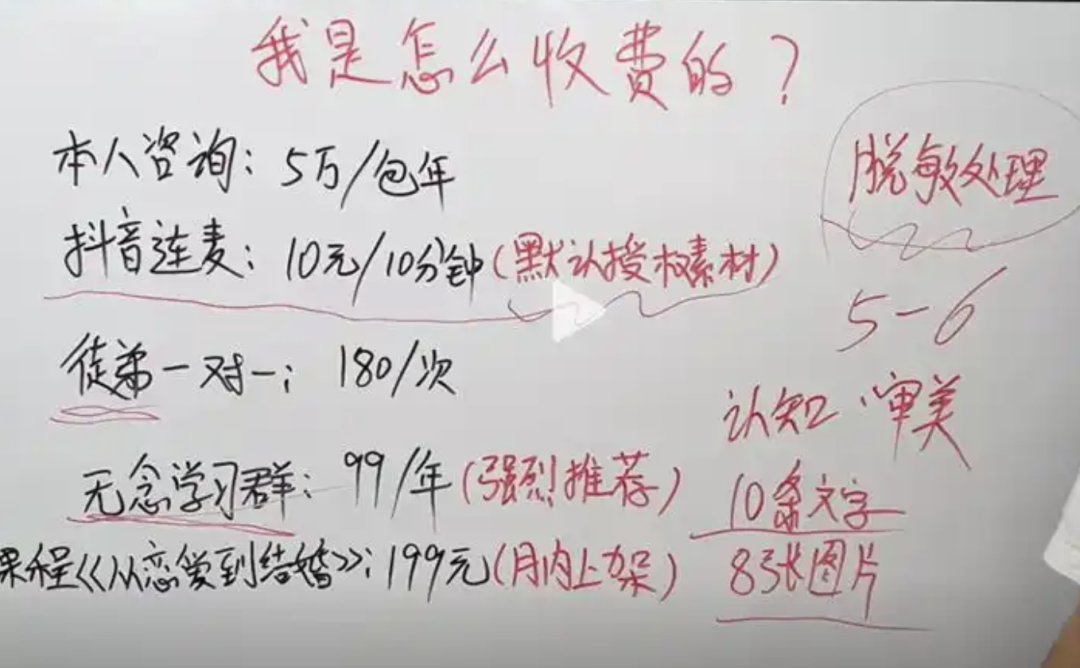 我是怎么收费的？
本人咨询：5万/包年
抖音连麦：10元/10分钟（默认授权素材）
徒弟一对一：180/次
无念学习群：99/年（强烈推荐）
课程《从恋爱到结婚》：199元（月内上架）
脱敏处理
5-6
认知、审美
10条文字
83张图片